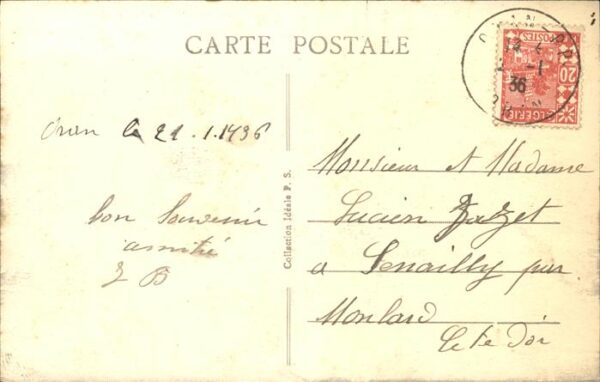 CARTE POSTALE
ORAN
36
20
POSTES
ALGERIE
Oran le 21.1.1936
bon souvenir
amitié
B
Collection Idéale P. S.
Monsieur et Madame
Lucien
a Senailly par
Monbard
Cote d'or